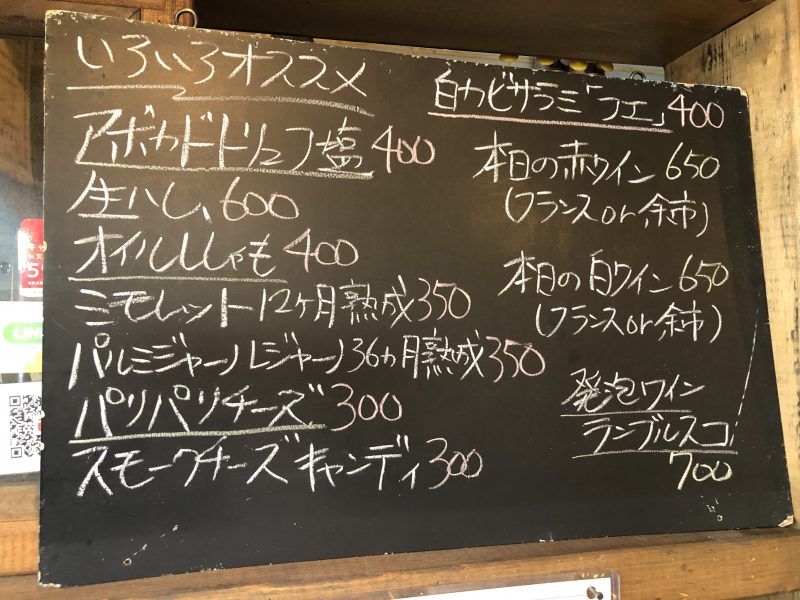 いろいろオススメ
アボカドトリュフ塩 400
生ハム 600
オイルししゃも 400
ミモレット12ヶ月熟成 350
パルミジャーノレジャーノ36ヵ月熟成 350
パリパリチーズ 300
スモークチーズキャンディ 300
白カビサラミ「フエ」 400
本日の赤ワイン 650
(フランス or 余市)
本日の白ワイン 650
(フランス or 余市)
発泡ワイン
ランブルスコ
700
LINE